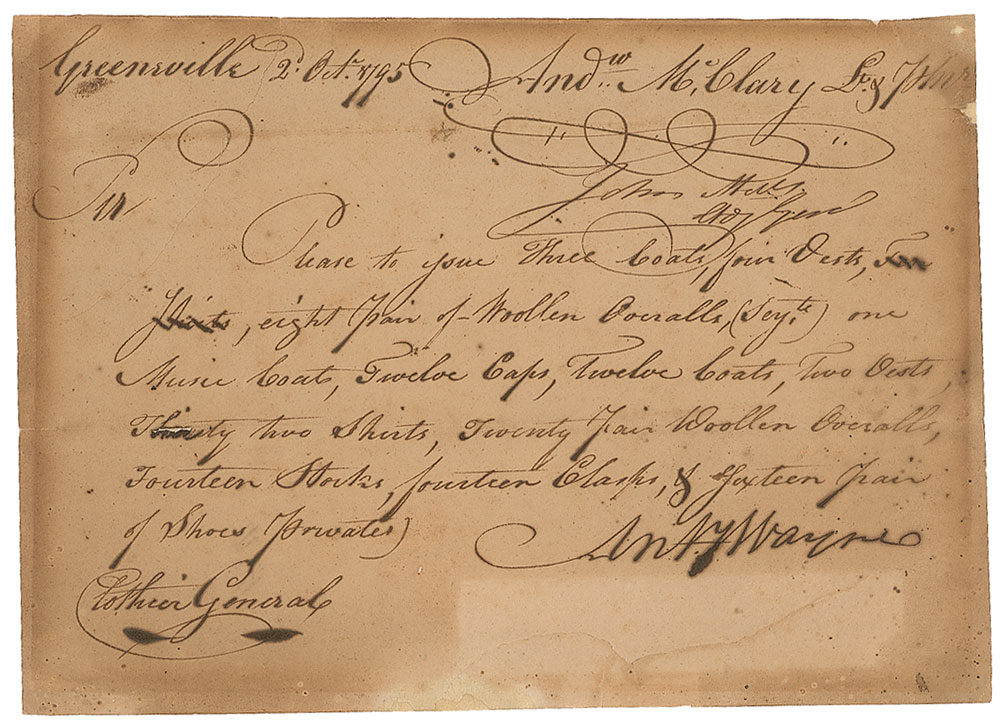 Greenville 2d. Octr. 1795 Andw. McClary Lt. &
Sir
John Mills
Adj Gen
Please to issue Three Coats, four Vests,
Shirts, eight Pair of Woollen Overalls, (Serjts.) one
Music Coat, Twelve Caps, Twelve Coats, Two Vests,
Thirty two Shirts, Twenty Pair Woollen Overalls,
Fourteen Stocks, fourteen Clasps, & Sixteen pair
of Shoes Privates)
Anty Wayne
Clothier General